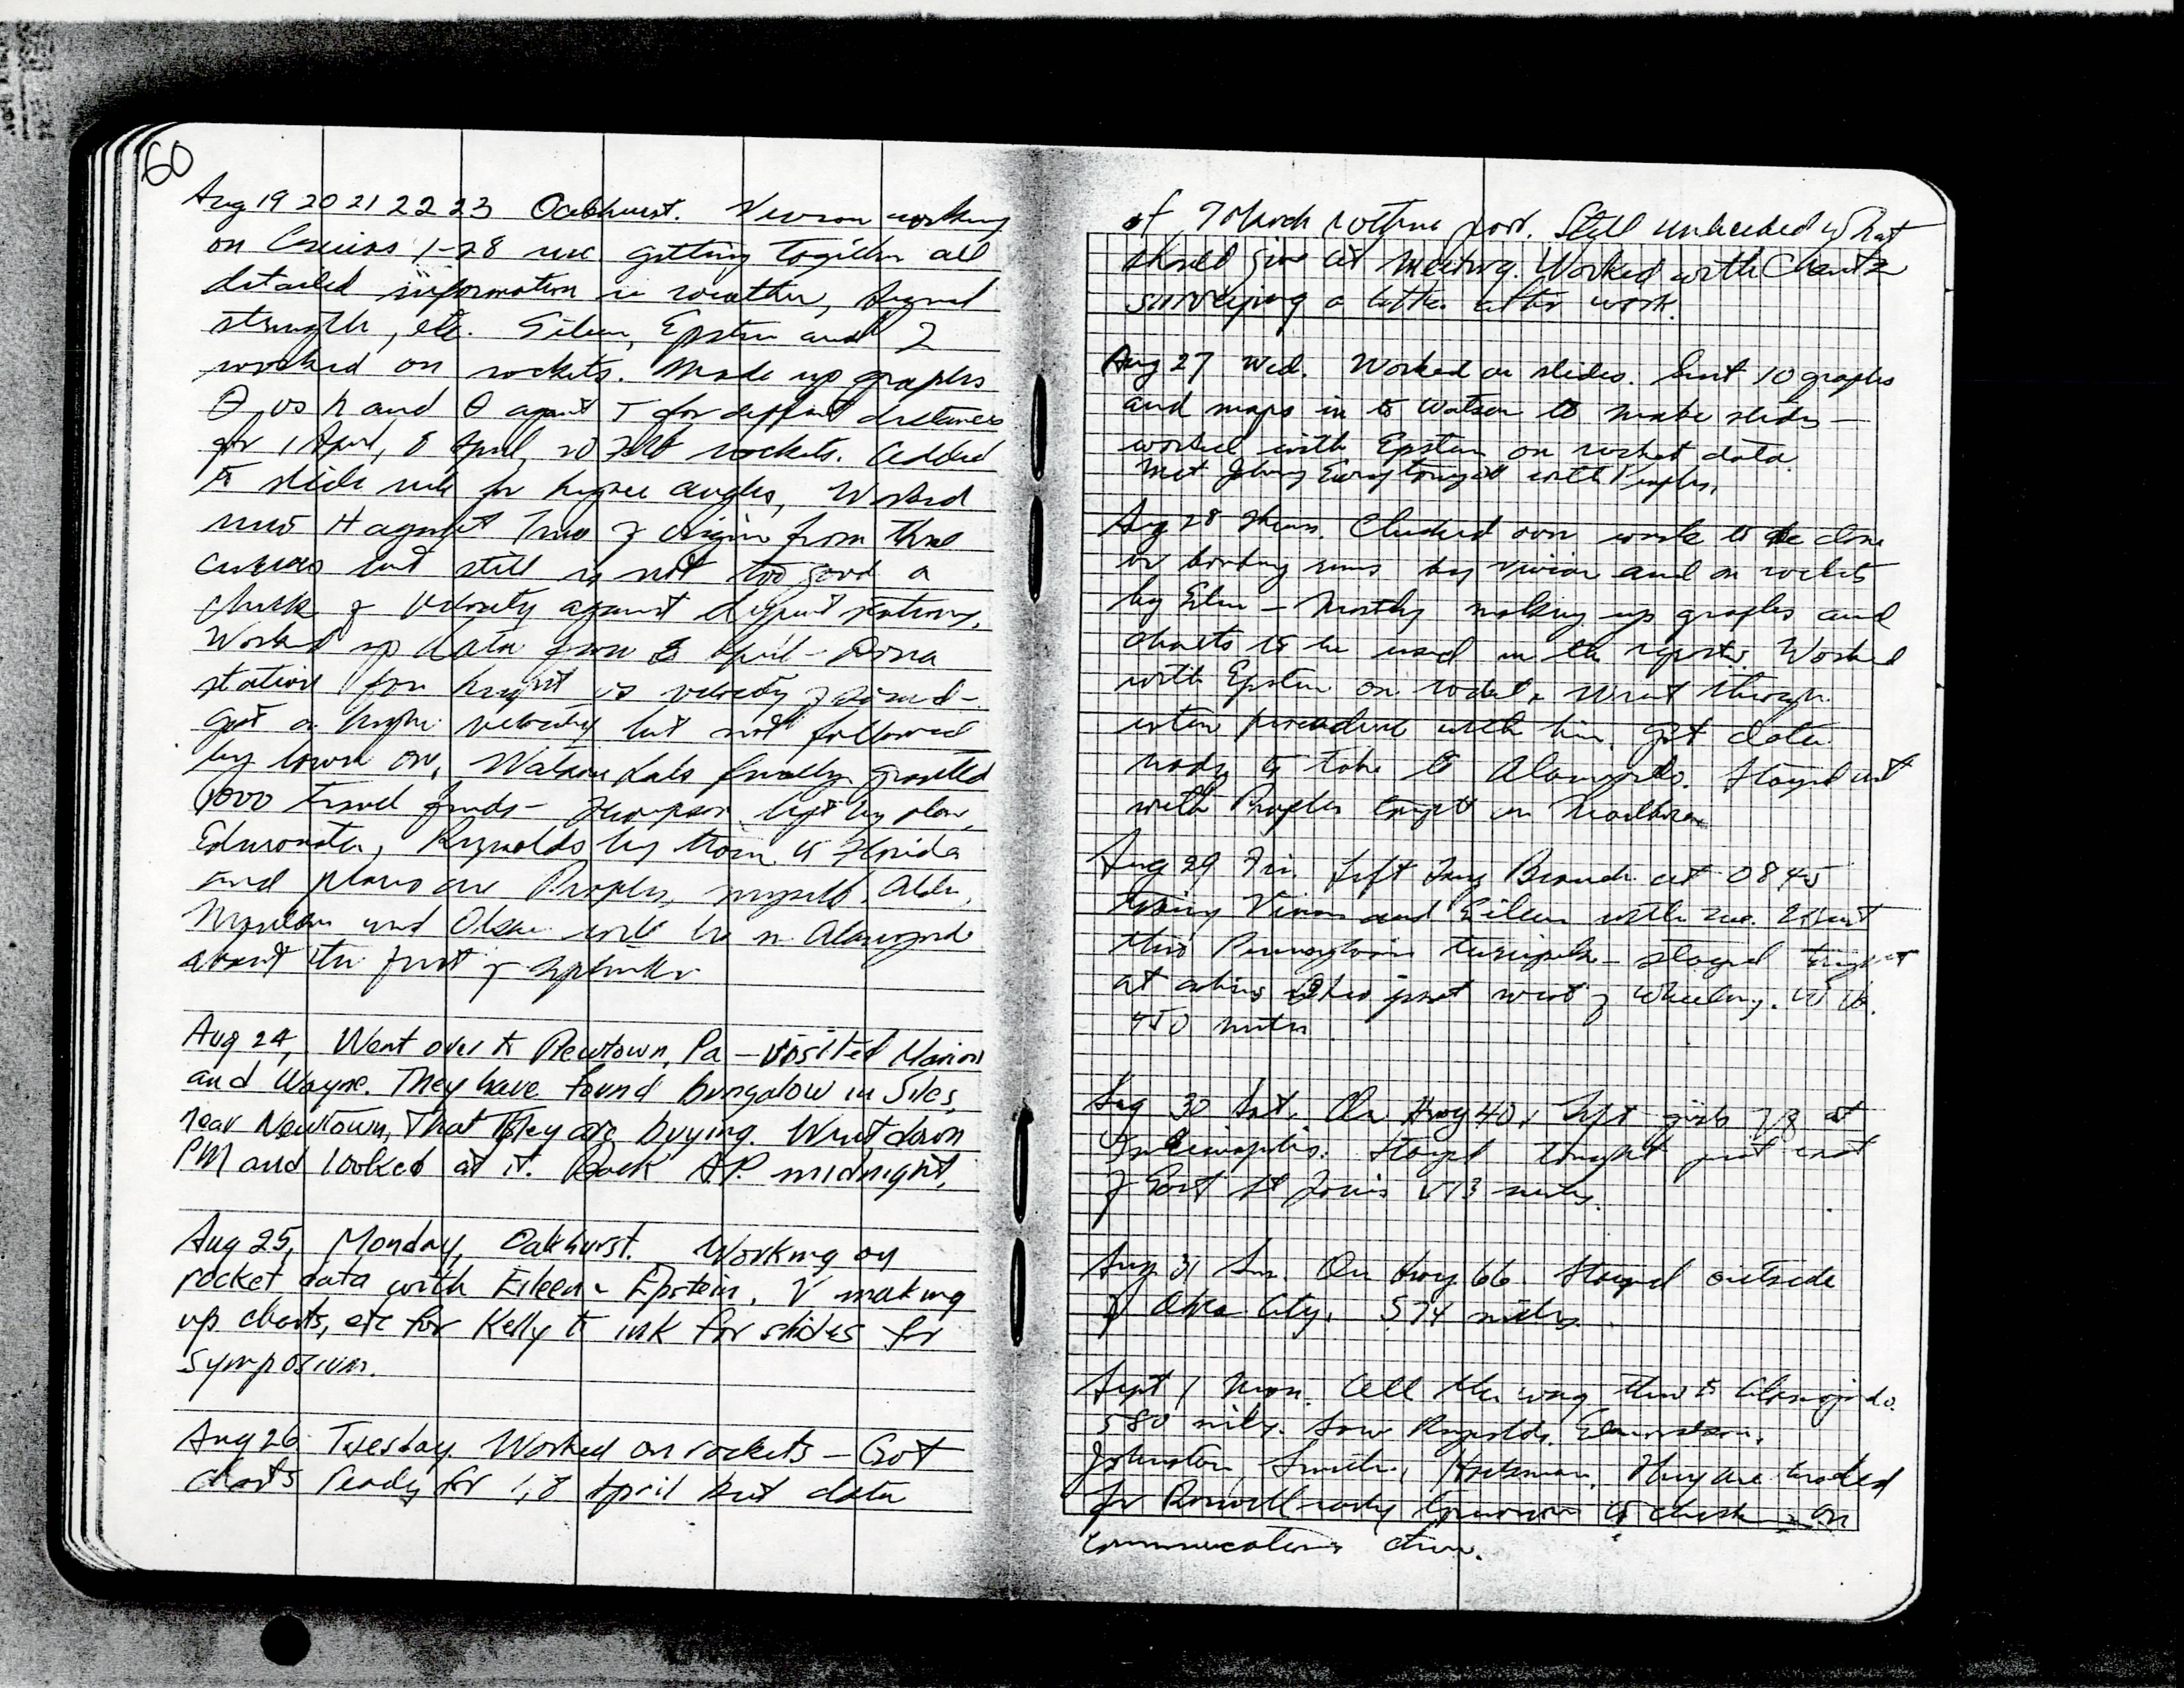 60
Aug 19 20 21 22 23 Oakhurst. Vivian working
on 1-28 and getting together all
detailed information in weather, signal
strength, etc. Eileen, Epstein and I
worked on rockets. Made up graphs
θ vs h and θ against T for different distances
for 1 April, 8 April, rockets. Added
to slide rule for higher angles, Worked
H against Time of origin from three
curves but still is not too good a
check of velocity against different stations.
Worked up data from 8 April - Dona
station for height vs velocity of sound -
got a higher velocity but not followed
by lower one. Watson Labs finally granted
1000 travel funds - Thompson left by plane,
Edmonston, Reynolds by train to Florida
and plans are Peoples, myself, Alden,
and Olsen will be in Alamogordo
about the first of September
Aug 24, Went over to Newtown, Pa - visited Marion
and Wayne. They have found bungalow in Siles,
near Newtown, that they are buying. Went down
PM and looked at it. Back A.P. midnight.
Aug 25, Monday, Oakhurst. Working on
rocket data with Eileen - Epstein. V making
up charts, etc for Kelly to ink for slides for
symposium.
Aug 26 Tuesday. Worked on rockets - Got
charts ready for 1, 8 April but data
of 7 March rather poor. Still undecided what
should give at meeting. Worked with Chantz
surveying a little after work.
Aug 27 Wed. Worked on slides. Sent 10 graphs
and maps in to Watson to make slides -
worked with Epstein on rocket data.
Met Johnny tonight with Peoples.
Aug 28 Thurs. Checked over work to be done
on bombing runs by Vivian and on rockets
by Eileen - Mostly making up graphs and
charts to be used in the reports. Worked
with Epstein on rockets. Went through
entire procedure with him. Got data
ready to take to Alamogordo. Stayed out
with Peoples tonight in
Aug 29 Fri. Left Long Branch at 0845
taking Vivian and Eileen with me. Went
thru Pennsylvania turnpike - stayed tonight
at Ohio just west of Wheeling. W Va.
450 miles
Aug 30 Sat. On Hwy 40. Left girls off at
Indianapolis. Stayed tonight just east
of East St Louis 513 miles.
Aug 31 Sun. On Hwy 66. Stayed outside
of Okla City. 574 miles.
Sept 1 Mon. All the way thru to Alamogordo.
580 miles. Saw Reynolds, Edmonston,
Johnston, Smith, Hackman. They are headed
for Roswell early tomorrow to check on
communications there.